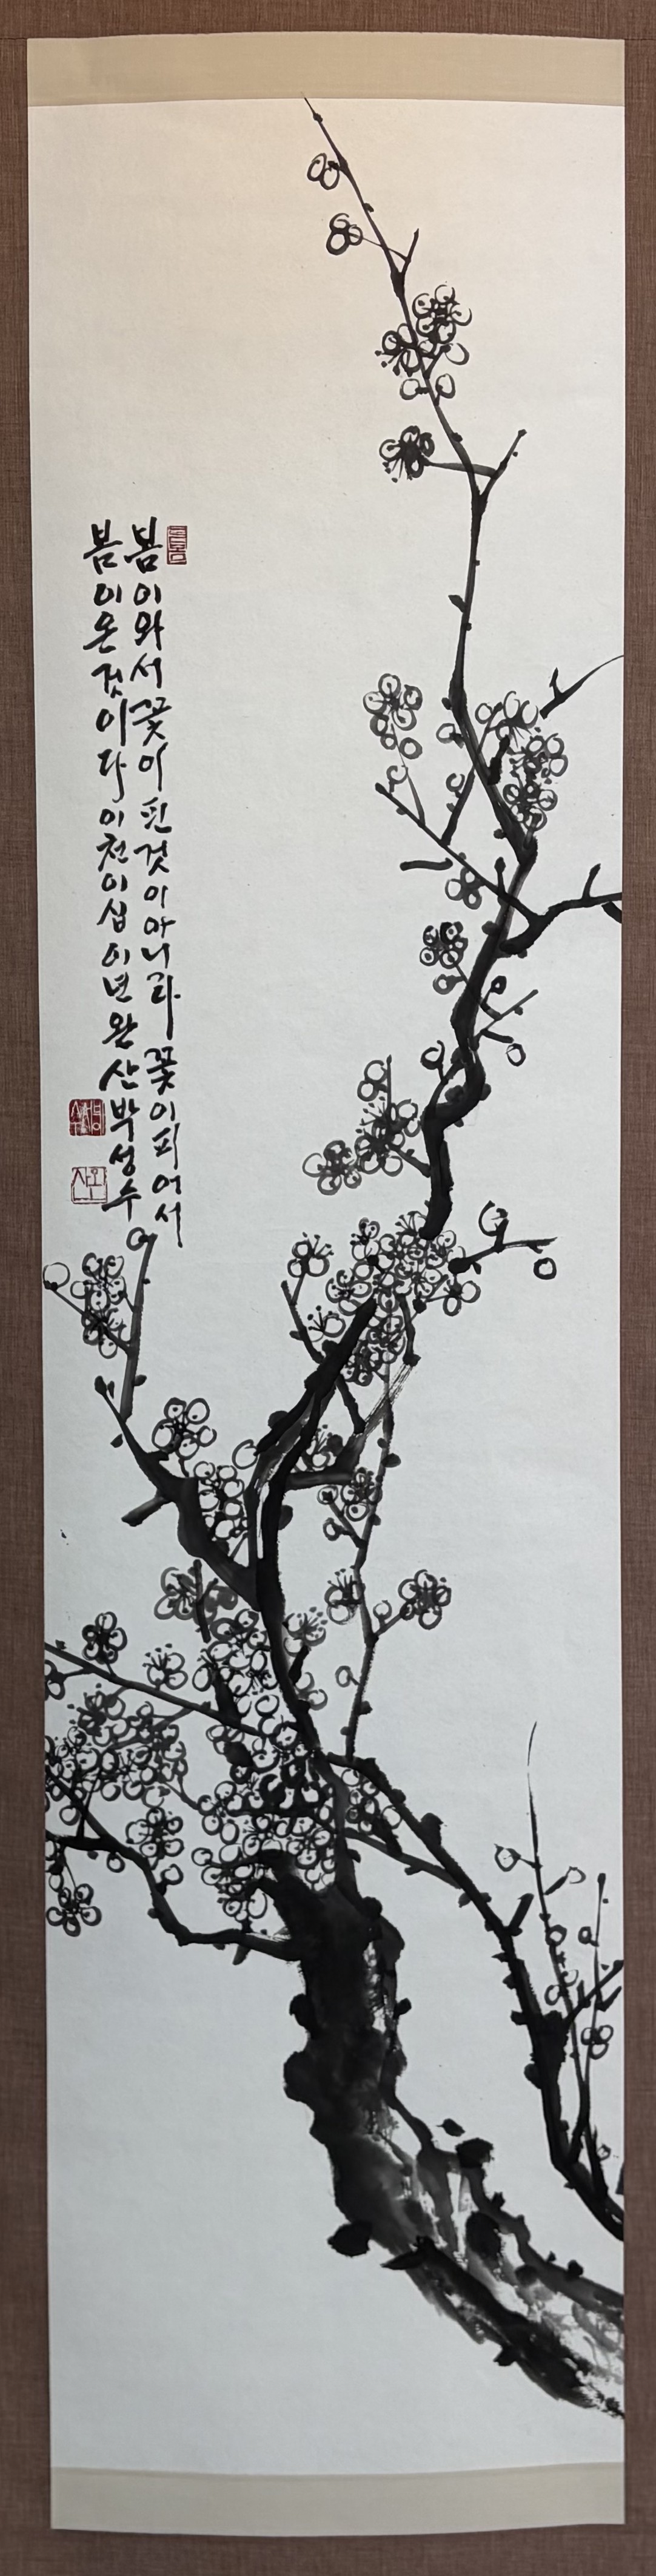 봄이와서꽃이핀것이아니라꽃이피어서
봄이온것이다이천이십이년완산박성수
완산